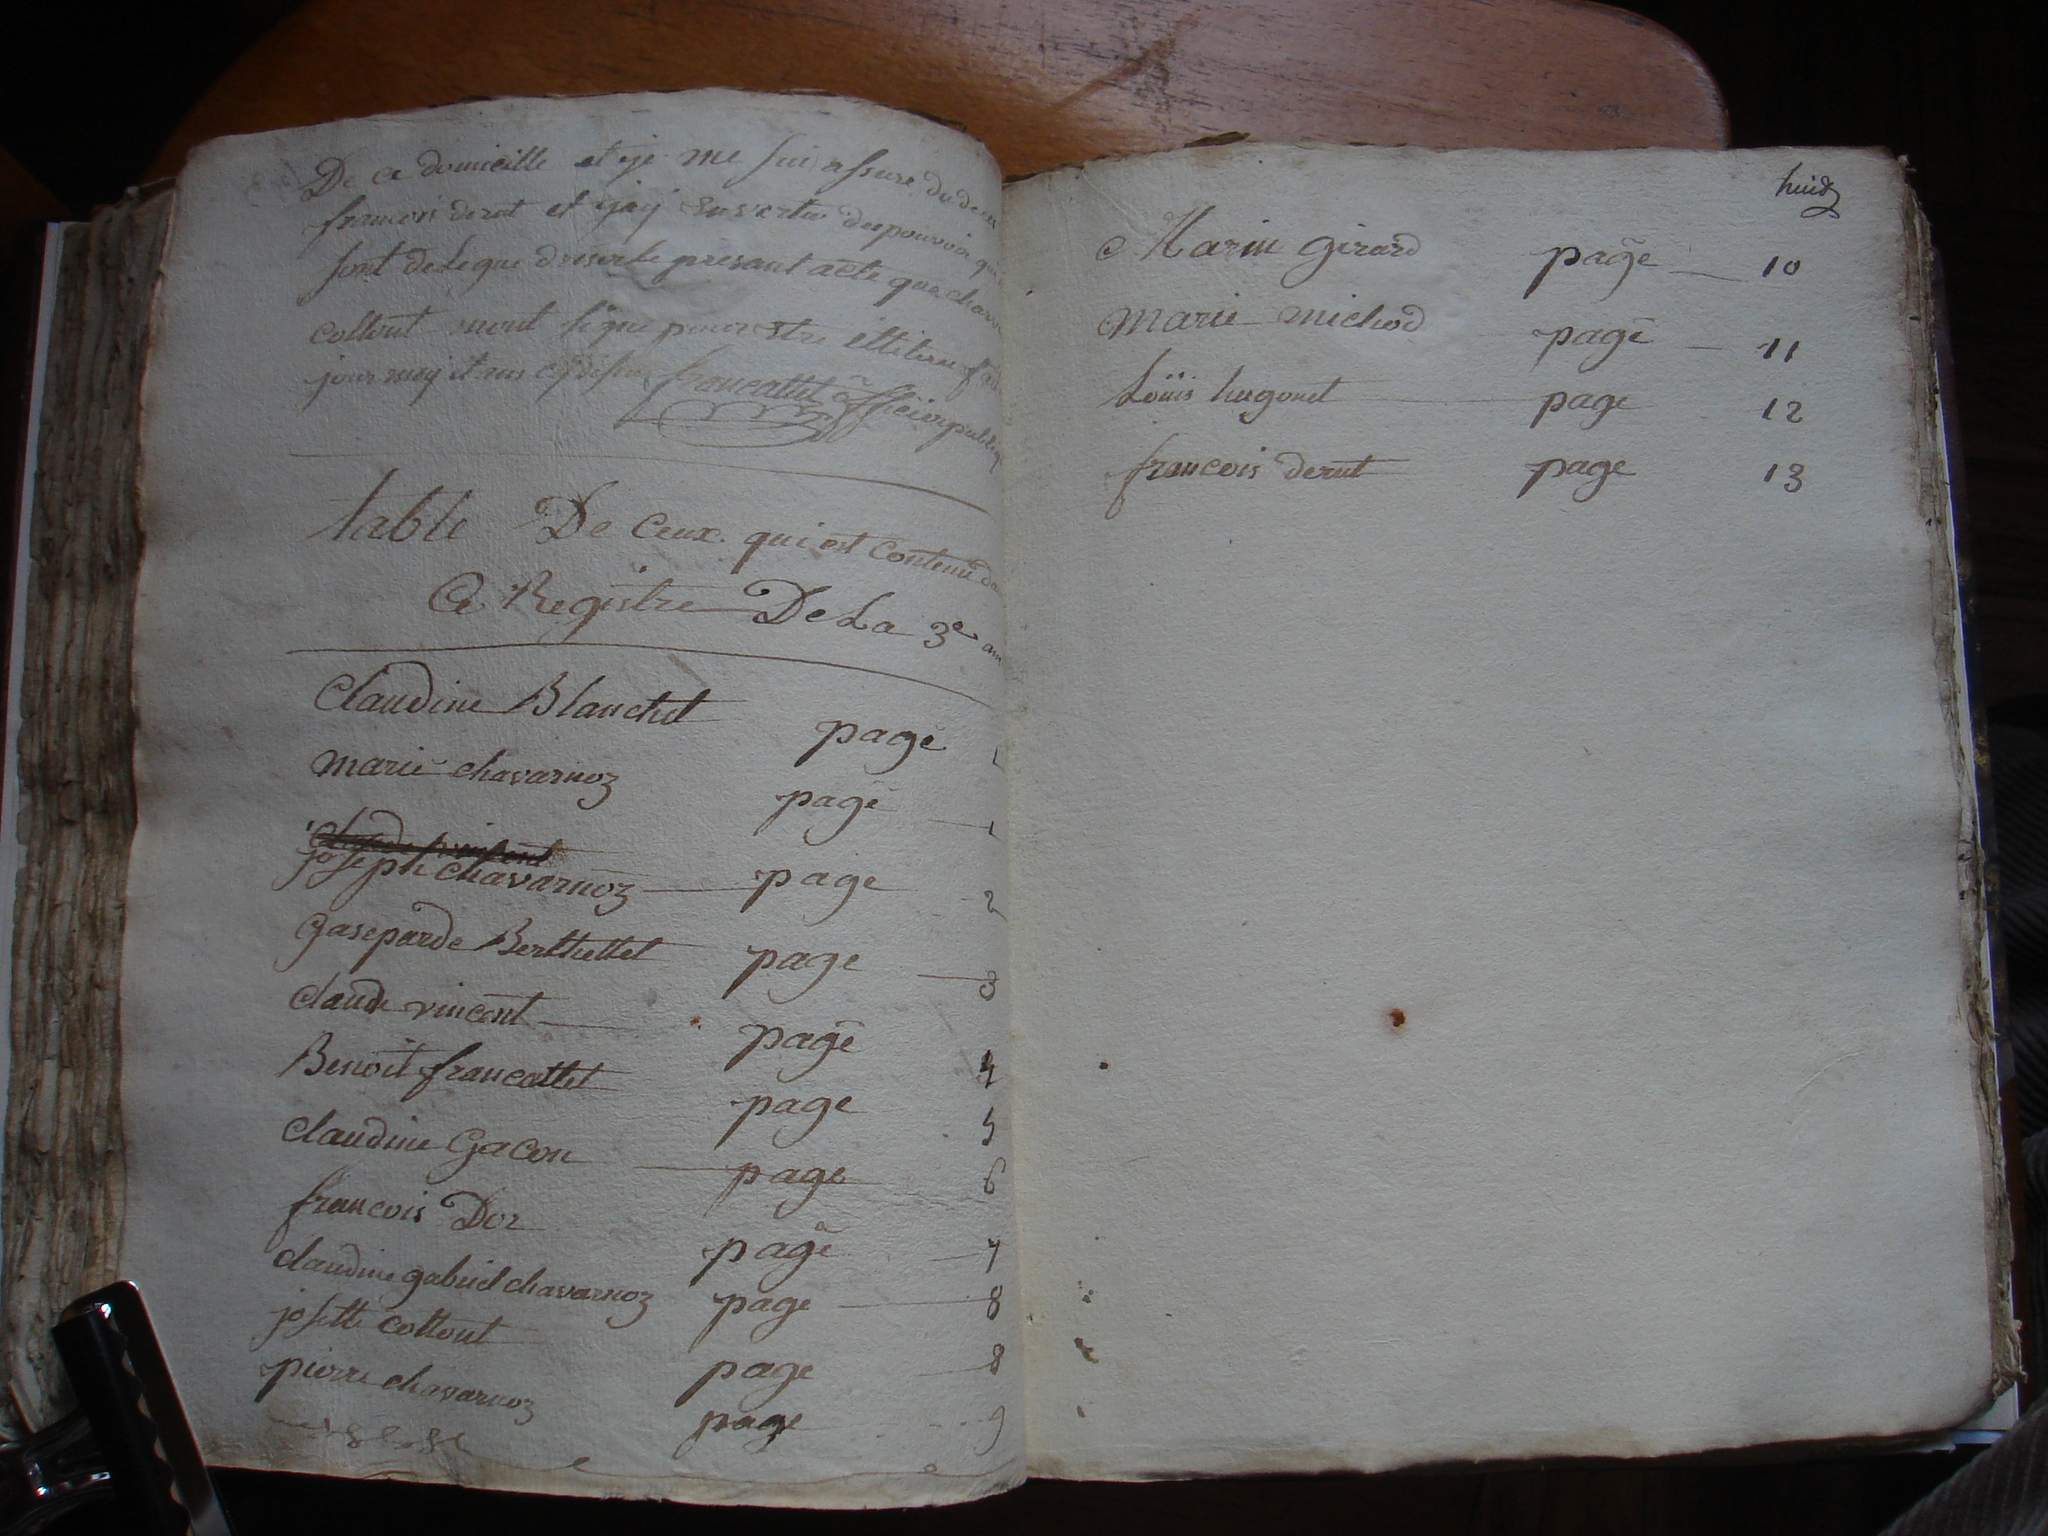 De ce domicille et je me suis assure du deces
francois derut et j'ay en vertu des pouvoir qui
sont delegue drese le presant acte que chavar
coltout nont signe
jour moy et an francattet officier public
table De Ceux qui est contenu da
Ce Registre De La 3e ann
Claudine Blanchet page 1
marie chavarnoz page 1
claude vincent
joseph chavarnoz page 2
gasparde Berthettet page 3
claude vincent page 4
Benoit francattet page 5
claudine Gacon page 6
francois Dor page 7
claudine gabriel chavarnoz page 8
josette coltout page 8
pierre chavarnoz page 9
huit
Marin girard page 10
marie michod page 11
Loüis hugonet page 12
francois derut page 13